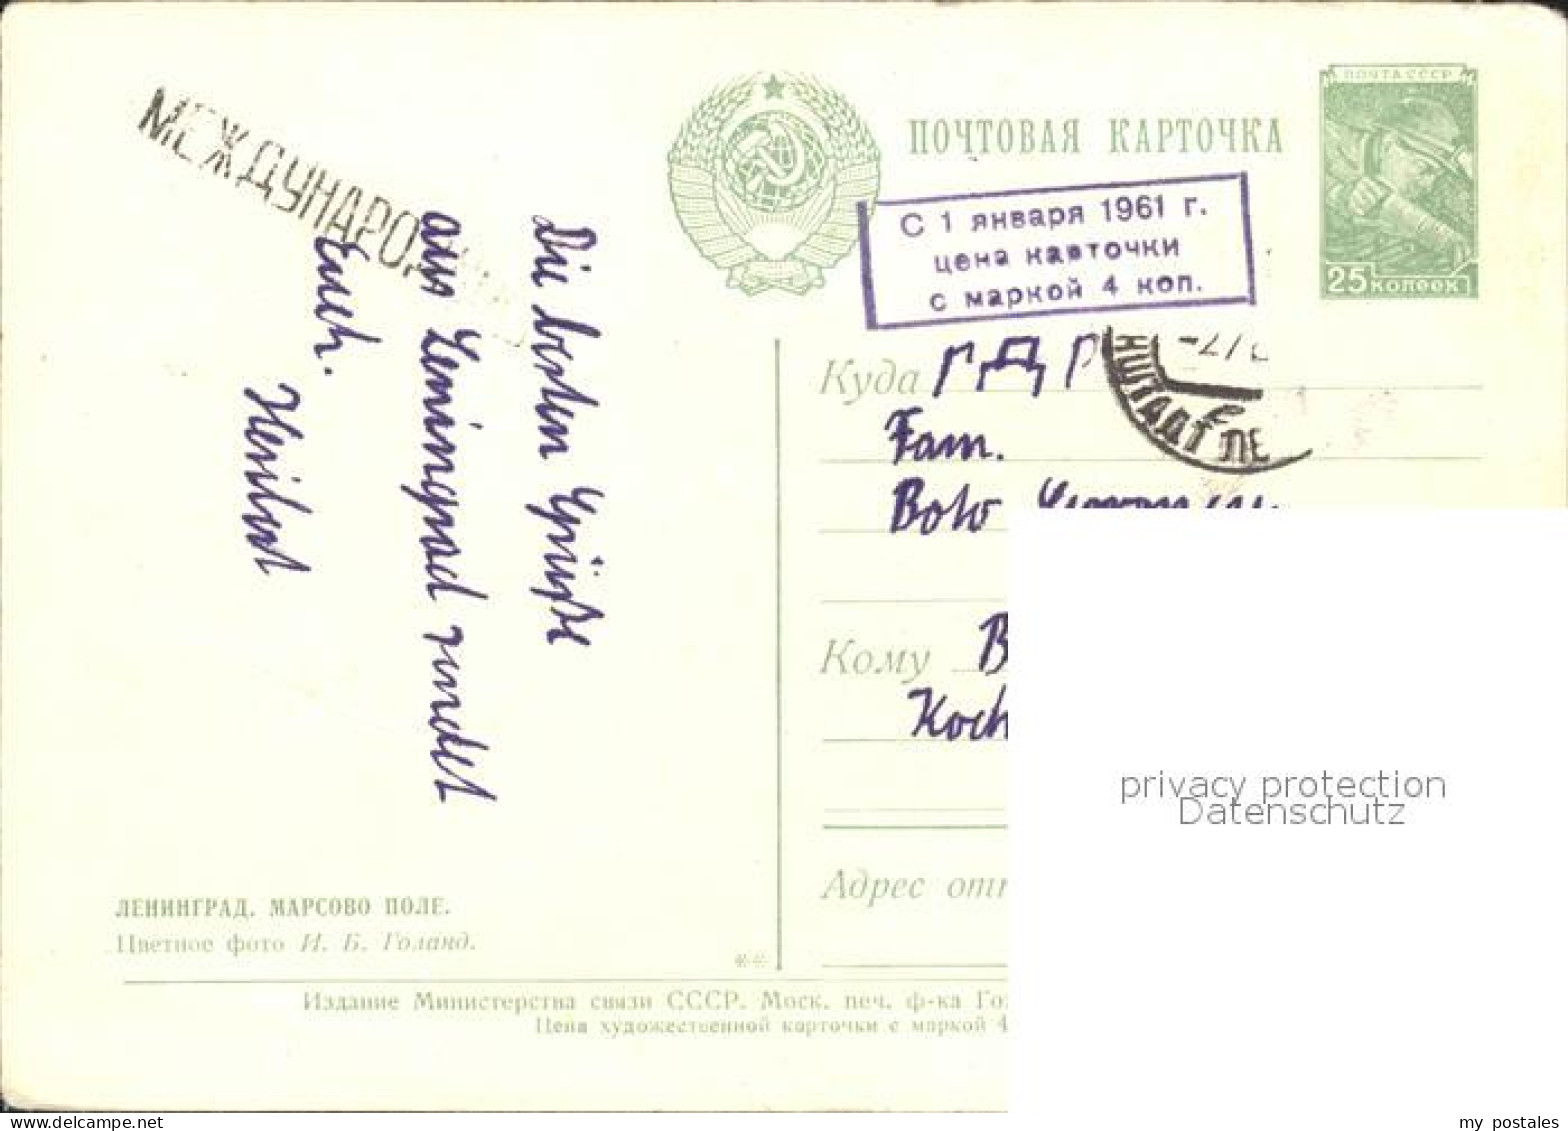 МЕЖДУНАРОД
Die besten Grüße
aus Leningrad sendet
Euch.
ПОЧТОВАЯ КАРТОЧКА
ПОЧТА СССР
25 КОПЕЕК
С 1 января 1961 г.
цена карточки
с маркой 4 коп.
Куда ГДР
НШТАДТ ЛЕ
Fam.
Кому B
Koch
Адрес отп
ЛЕНИНГРАД. МАРСОВО ПОЛЕ.
Цветное фото И. Б. Голанд.
Издание Министерства связи СССР. Моск. печ. ф-ка Го
Цена художественной карточки с маркой 4
privacy protection
Datenschutz
my postales